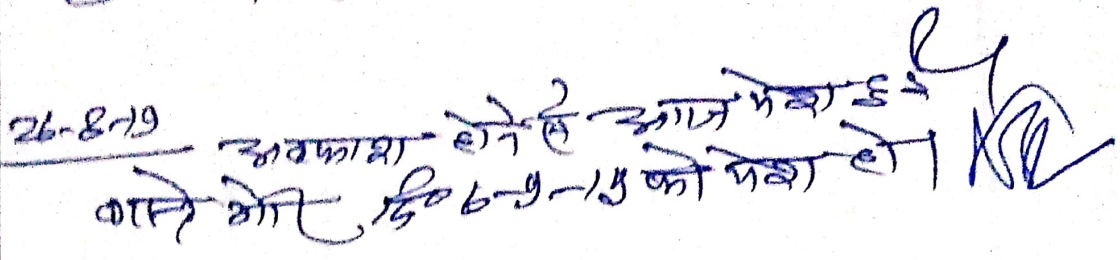 26-8-19 अवकाश होने से आज पेश हुई
वास्ते गौर दि० 6-9-19 को पेश हो।